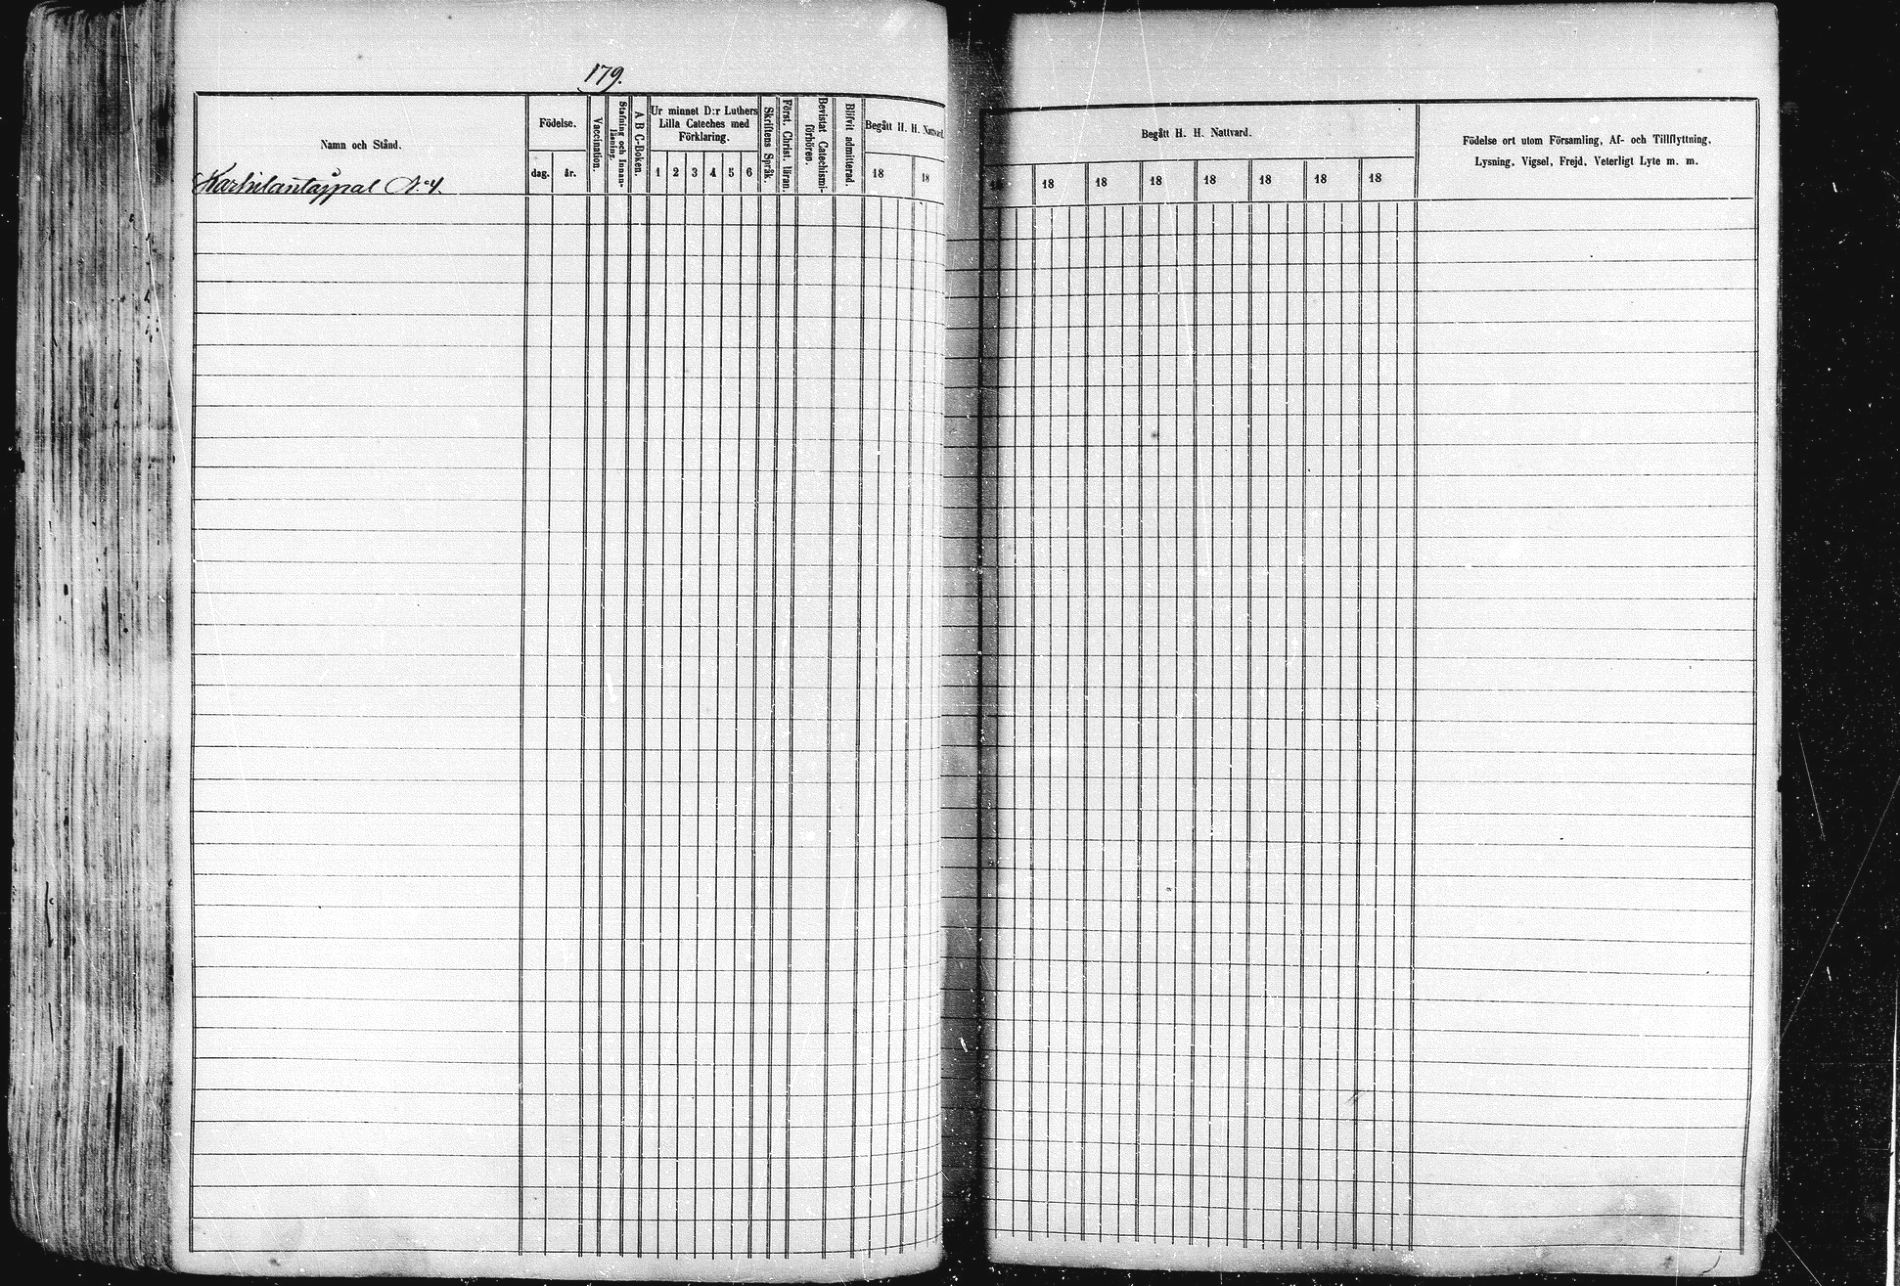 179.
Namn och Stånd.
Karhilantaipal N:o 4.
Födelse.
dag.
år.
Vaccination.
Stafning och Innan-
läsning.
A B C-Boken.
Ur minnet D:r Luthers
Lilla Cateches med
Förklaring.
1 2 3 4 5 6
Skriftens Språk.
Först. Christ. läran.
Bevistat Catechismi-
förhören.
Blifvit admitterad.
Begått H. H. Nattvard.
18 18
Begått H. H. Nattvard.
18 18 18 18 18 18 18 18
Födelse ort utom Församling, Af- och Tillflyttning,
Lysning, Vigsel, Frejd, Veterligt Lyte m. m.